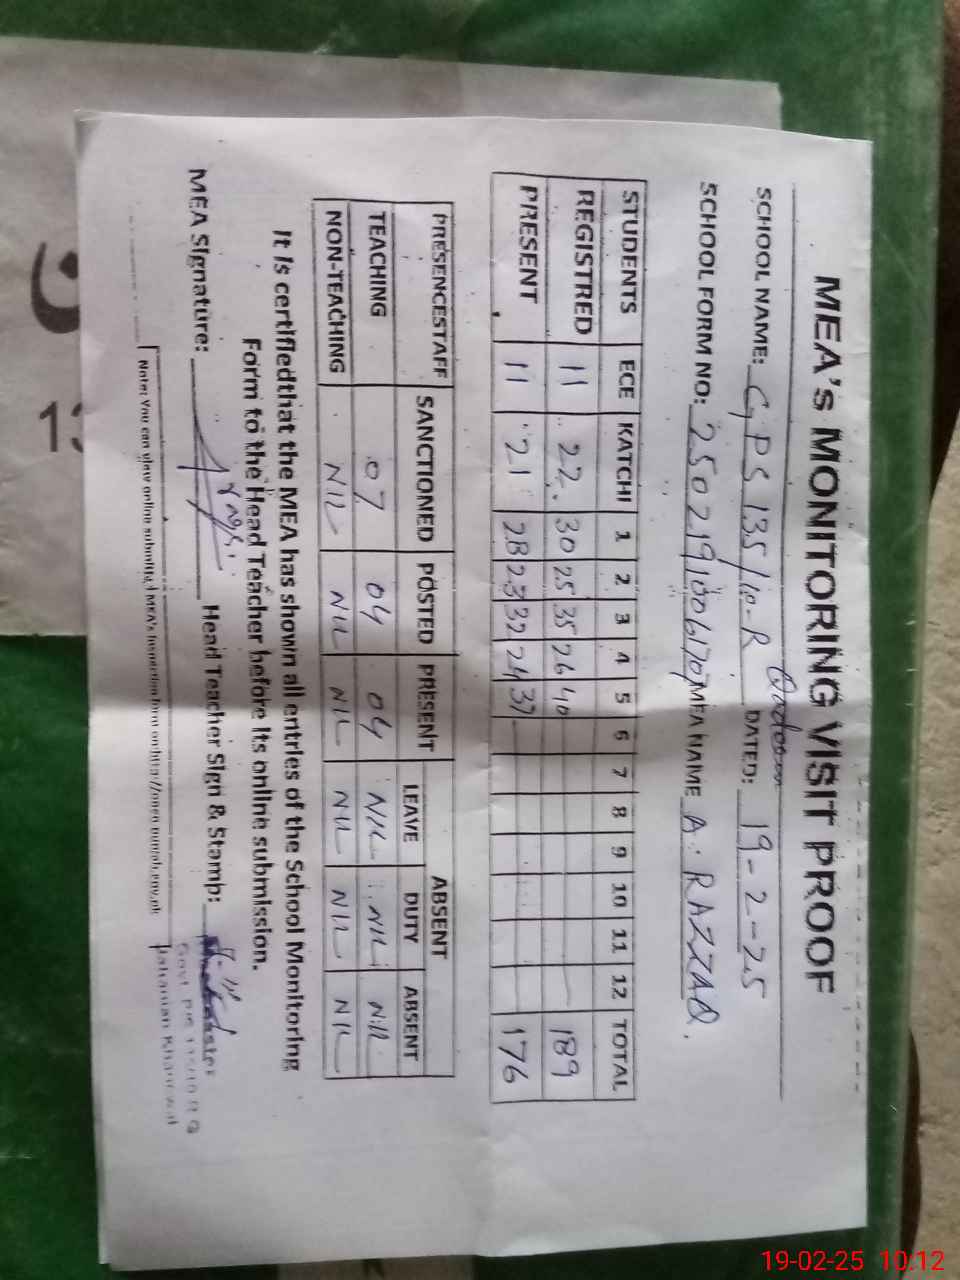 MEA's MONITORING VISIT PROOF
SCHOOL NAME: GPS 135/10-R Qadeem DATED: 19-2-25
SCHOOL FORM NO: MEA NAME A. RAZZAQ.
STUDENTS ECE KATCHI 1 2 3 4 5 6 7 8 9 10 11 12 TOTAL
REGISTRED 11 22 30 25 35 26 40 189
PRESENT 11 21 28 23 32 24 37 176
PRESENCESTAFF SANCTIONED POSTED PRESENT ABSENT
LEAVE DUTY ABSENT
TEACHING 07 04 04 NIL NIL NIL
NON-TEACHING NIL NIL NIL NIL NIL NIL
It is certifiedthat the MEA has shown all entries of the School Monitoring
Form to the Head Teacher before its online submission.
MEA Signature: Head Teacher Sign & Stamp:
Jahanian Khanewal
Note: You can view online submitted MEA's
ن
13
19-02-25 10:12